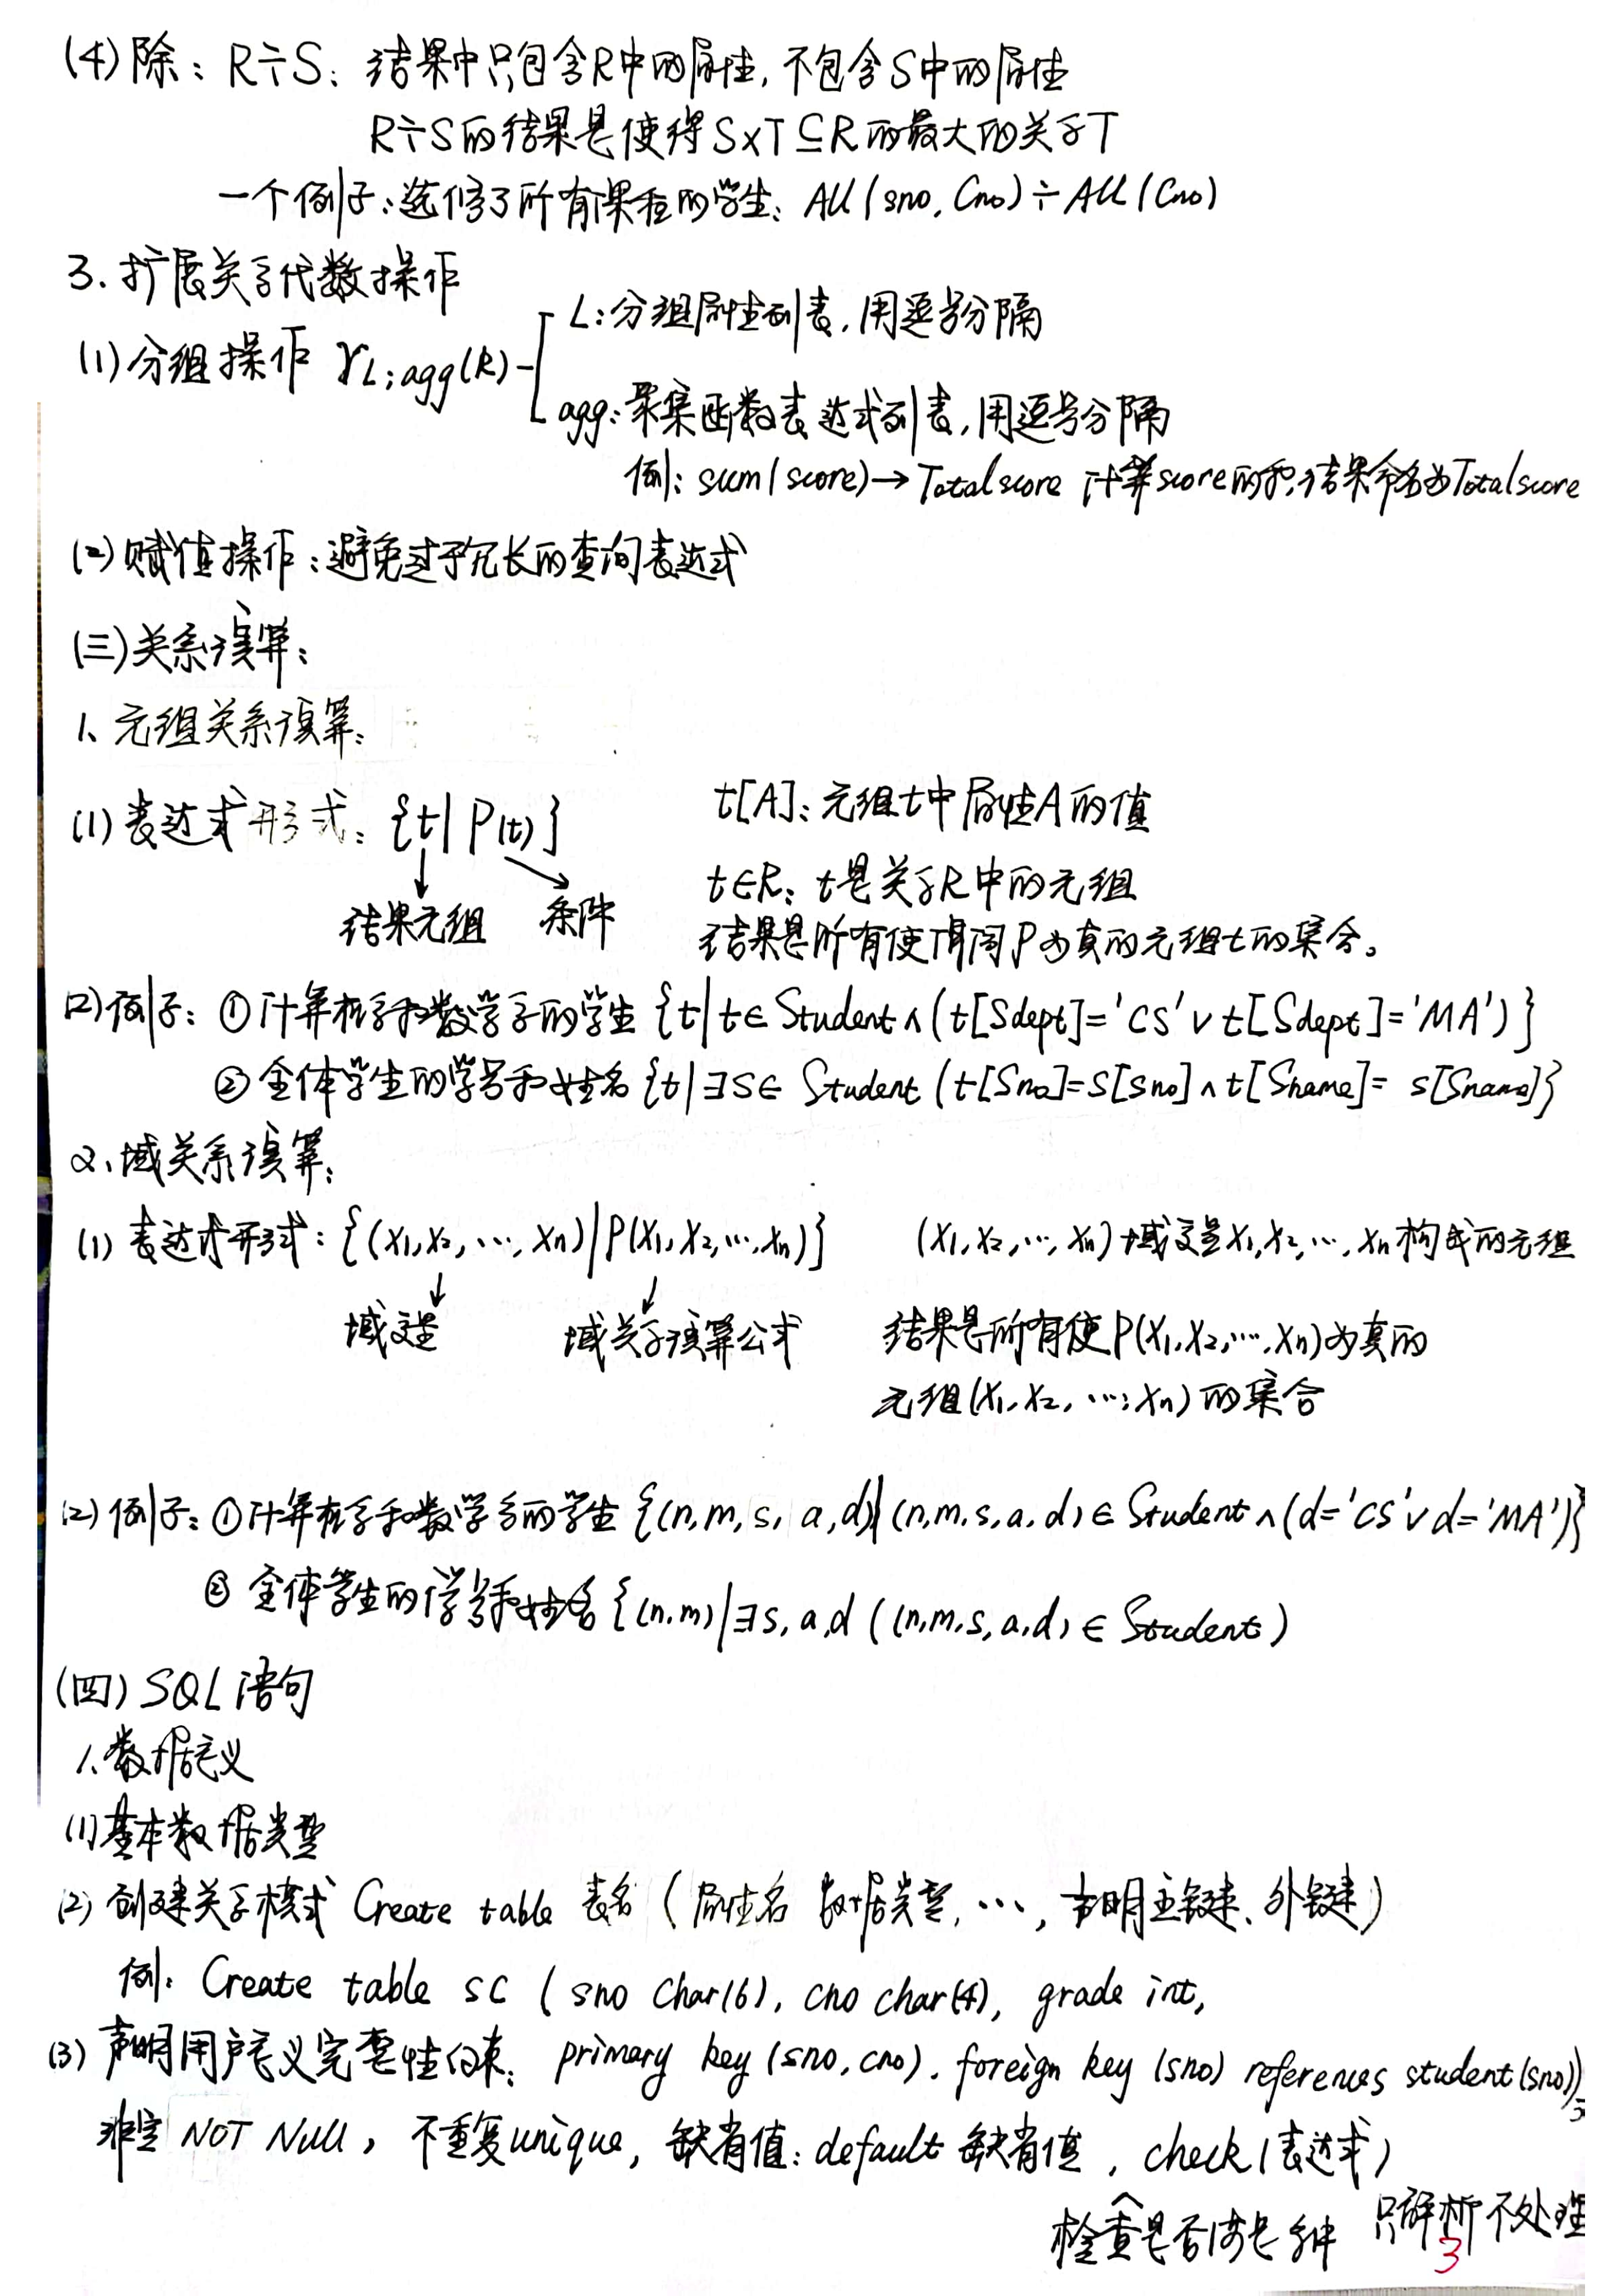 (4)除：R÷S：结果中只包含R中的属性，不包含S中的属性
R÷S的结果是使得S×T⊆R的最大的关系T
一个例子：选修了所有课程的学生：All(sno, Cno)÷All(Cno)
3.扩展关系代数操作
L：分组属性列表，用逗号分隔
(1)分组操作 γL;agg(R)
agg：聚集函数表达式列表，用逗号分隔
例：sum(score)→Totalscore 计算score的和，结果命名为Totalscore
(2)赋值操作：避免过于冗长的查询表达式
(三)关系演算：
1、元组关系演算：
(1)表达式形式：{t|P(t)} t[A]：元组t中属性A的值
t∈R：t是关系R中的元组
结果元组 条件 结果是所有使得P为真的元组t的集合。
(2)例子：①计算机系和数学系的学生{t|t∈Student∧(t[Sdept]='CS'∨t[Sdept]='MA')}
②全体学生的学号和姓名{t|∃s∈Student(t[Sno]=s[sno]∧t[Sname]=s[Sname]}
2、域关系演算：
(1)表达式形式：{(x1,x2,…,xn)|P(x1,x2,…,xn)} (x1,x2,…,xn)域变量x1,x2,…,xn构成的元组
域变量 域关系演算公式 结果是所有使P(x1,x2,…,xn)为真的
元组(x1,x2,…,xn)的集合
(2)例子：①计算机系和数学系的学生{(n,m,s,a,d)|(n,m,s,a,d)∈Student∧(d='CS'∨d='MA')}
② 全体学生的学号和姓名{(n,m)|∃s,a,d((n,m,s,a,d)∈Student)
(四)SQL语句
1.数据定义
(1)基本数据类型
(2)创建关系模式 Create table 表名(属性名 数据类型,…,声明主键、外键)
例：Create table SC (sno Char(6), cno char(4), grade int,
(3)声明用户定义完整性约束： primary key (sno,cno), foreign key (sno) references student(sno))
非空 NOT Null，不重复unique，缺省值：default 缺省值，check(表达式)
检查是否满足条件 只解析不处理
3